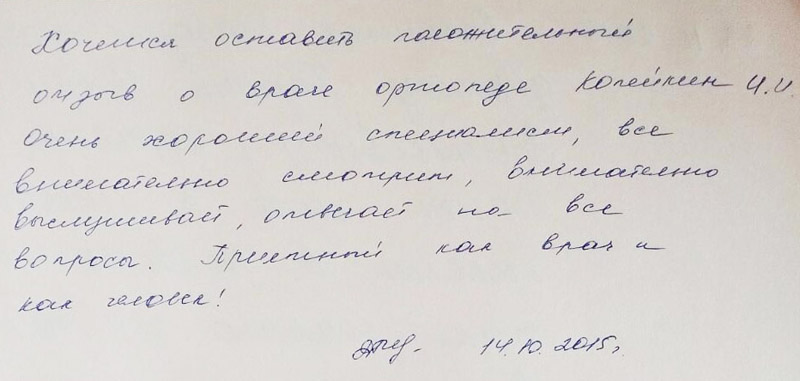 Хочется оставить положительный
отзыв о враче ортопеде Копейкин И.И.
Очень хороший специалист, все
внимательно смотрит, внимательно
выслушивает, отвечает на все
вопросы. Приятный как врач и
как человек!
14.10.2015г.